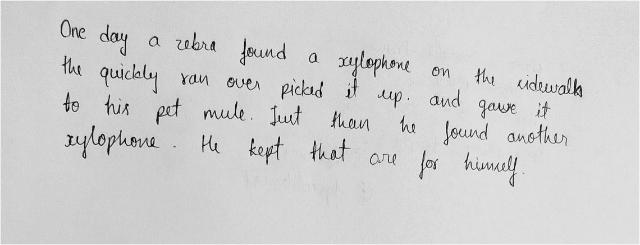 One day a zebra found a xylophone on the sidewalk
the quickly ran over picked it up. and gave it
to his pet mule. Just than he found another
xylophone. He kept that are for himself.